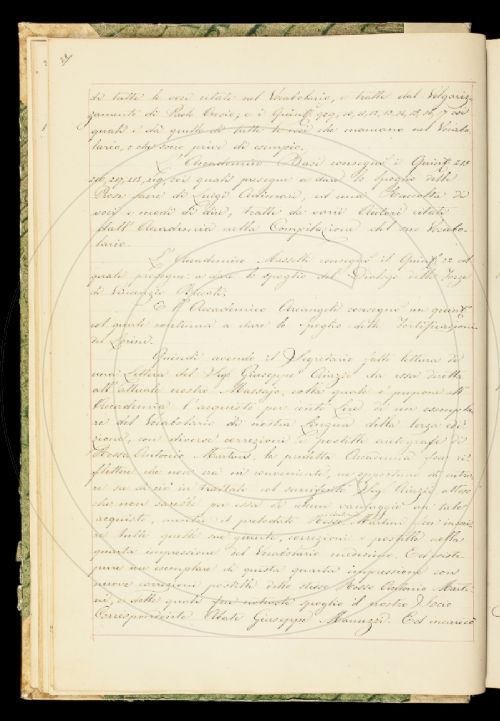 di tutte le voci citate nel Vocabolario, e tratte dal Volgariz-
zamento di Paolo Orosio; e i Quint.
quali i dà quello di tutte le voci che mancano nel Vocabo-
lario, o che sono prive di esempio.
L'Accademico Basi consegnò i Quint. 215
216, 217, 218, 219, coi quali prosegue a dare lo spoglio delle
Prose sacre di Luigi Adimari, ed una Raccolta di
voci e modi di dire, tratte da varii Autori citati
dall'Accademia nella Compilazione del suo Vocabo-
lario.
L'Accademico Masselli consegnò il Quint. 22 col
quale prosegue a dare lo spoglio del Dialogo delle Forze
di Vincenzio
E l'Accademico Arcangeli consegnò un quint.
col quale continua a dare lo spoglio delle Fortificazioni
del Lorini.
Quindi avendo il Segretario fatto lettura di
una Lettera del Sig. Giuseppe Aiazzi da esso diretta
all'attuale nostro Massajo, colla quale si propone all'
Accademia l'acquisto per cento Lire di un esempla-
re del Vocabolario di nostra Lingua della terza edi-
zione, con diverse correzioni e postille autografe di
Rosso Antonio Martini, la predetta Accademia fece ri-
flettere che non era in
re su di ciò in trattato col surriferito Sig. Aiazzi, atteso
che non sarebbe per essa di alcun vantaggio un tale
acquisto, mentre il prelodato Rosso Martini
re tutte queste sue giunte, correzioni e postille nella
quarta impressione del Vocabolario medesimo. Ed esiste
pure un esemplare di questa quarta impressione con
nuove correzioni postille dello stesso Rosso Antonio Marti-
ni, e delle quali spoglio il nostro Socio
Corrispondente Abate Giuseppe Manuzzi. Ed incaricò